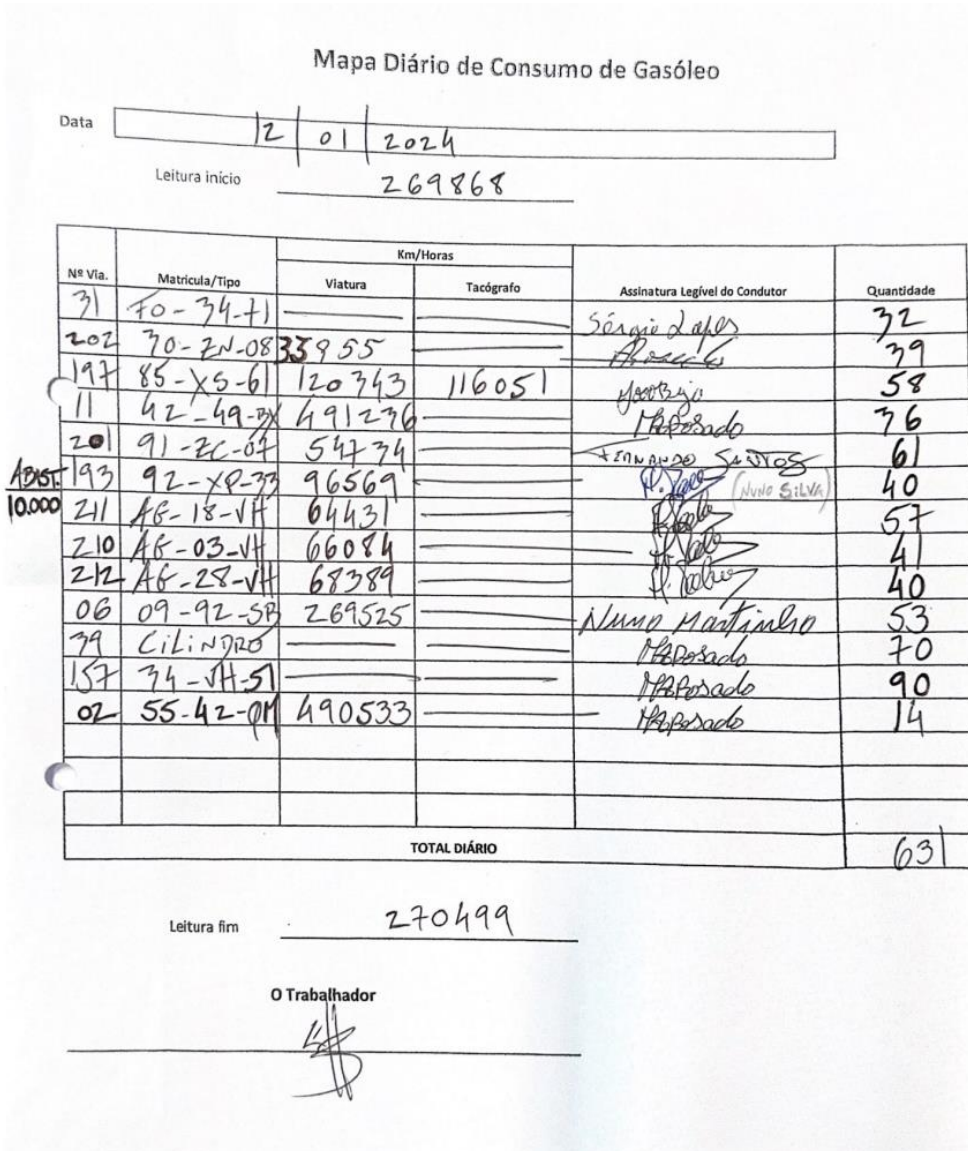 Mapa Diário de Consumo de Gasóleo
Data 12 01 2024
Leitura início 269868
Nº Via. Matricula/Tipo Km/Horas Viatura Tacógrafo Assinatura Legível do Condutor Quantidade
31 70-34-71 Sérgio Lopes 32
202 30-ZN-08 33955 39
197 85-XS-61 120343 116051 58
11 42-49-BX 491236 MRaposado 36
201 91-ZC-07 54734 FERNANDO SANTOS 61
ABAST. 10.000
193 92-XP-33 96569 (NUNO SILVA) 40
211 AG-18-VH 64431 57
210 AG-03-VH 66084 41
212 AG-28-VH 68389 40
06 09-92-SB 269525 Nuno Martinho 53
39 CILINDRO MRaposado 70
157 34-VH-51 MRaposado 90
02 55-42-QM 490533 MRaposado 14
TOTAL DIÁRIO 631
Leitura fim 270499
O Trabalhador